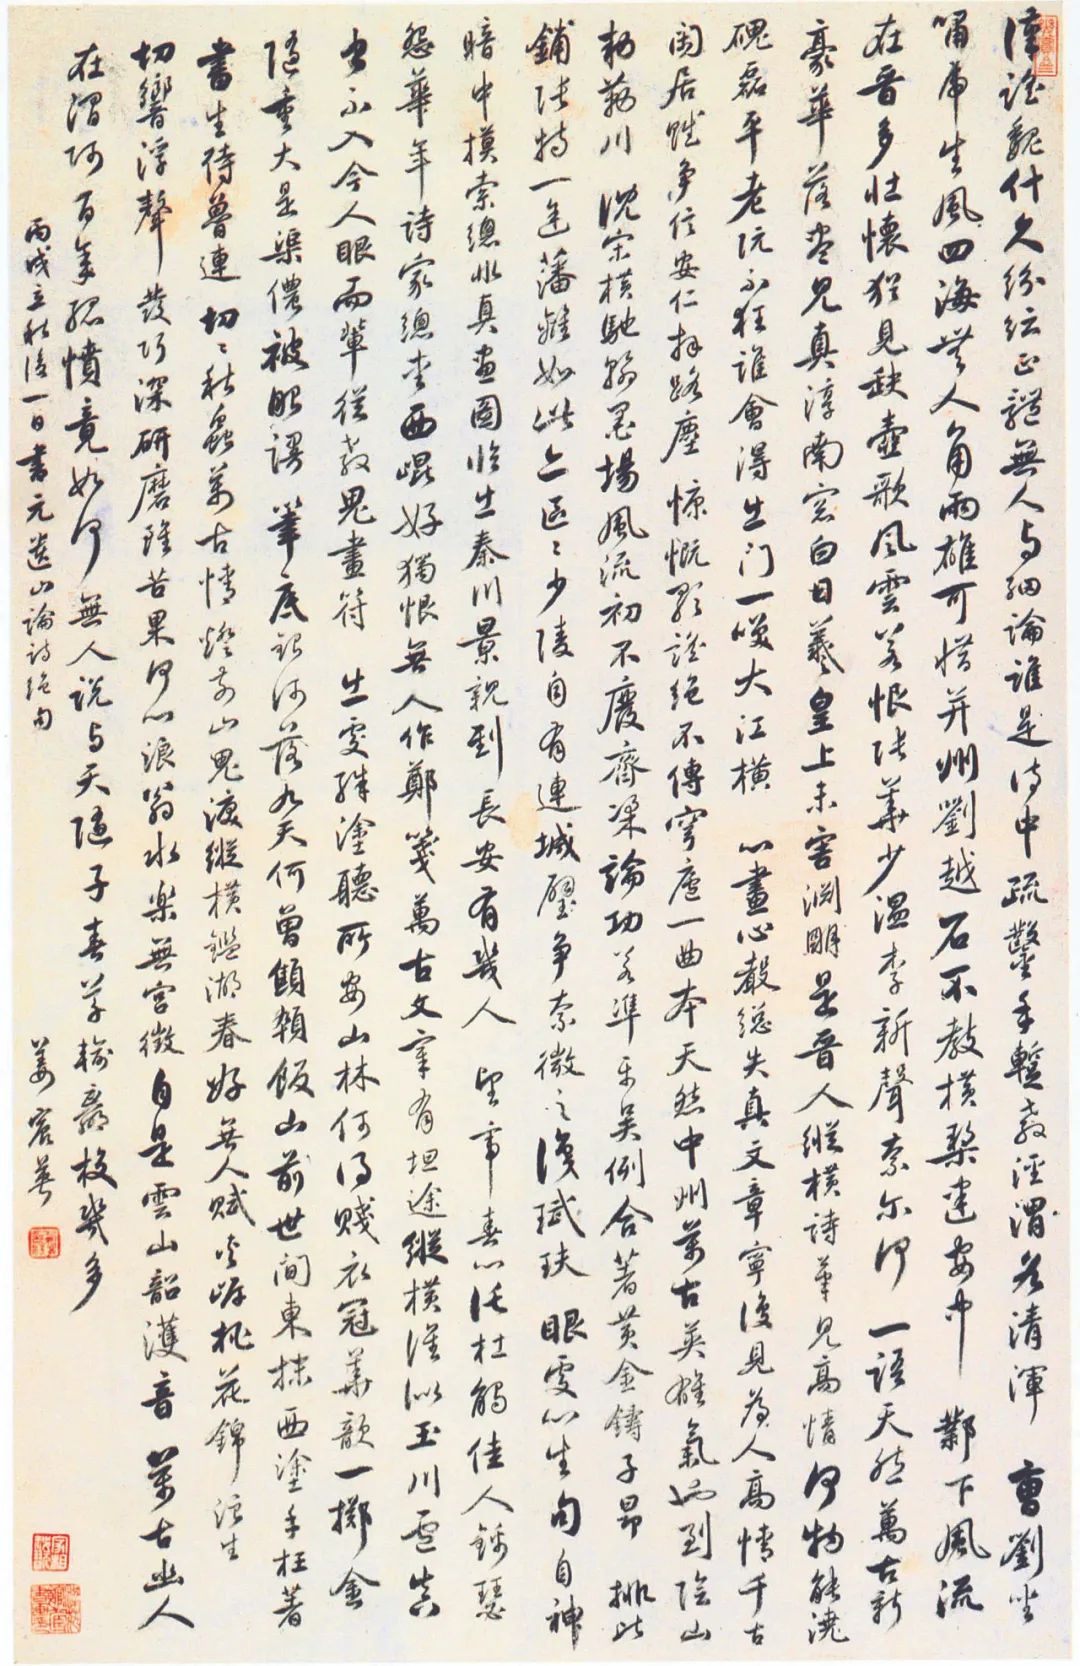 漢謠魏什久紛紜正體無人与細論誰是詩中疏鑿手暫教涇渭各清渾 曹劉坐
嘯虎生風四海無人角兩雄可惜并州劉越石不教橫槊建安中 鄴下風流
在晋多壯懷猶見缺壺歌風雲若恨張華少溫李新聲奈尔何 一語天然萬古新
豪華落盡見真淳南窓白日羲皇上未害淵明是晋人縱橫詩筆見高情何物能澆
磈磊平老阮不狂誰會得出门一笑大江橫 心畫心聲總失真文章寧復見為人高情千古
閑居賦爭信安仁拜路塵 慷慨歌謠絕不傳穹廬一曲本天然中州萬古英雄氣也到陰山
勑勒川 沈宋橫馳翰墨場風流初不廢齊梁論功若準平吳例合著黃金鑄子昂 排比
鋪張特一途藩籬如此亦區々少陵自有連城璧爭奈微之識珷玞 眼處心生句自神
暗中摸索總非真画圖臨出秦川景親到長安有幾人 望帝春心託杜鵑佳人錦瑟
怨華年詩家總愛西崐好獨恨無人作鄭箋萬古文章有坦途縱橫誰似玉川盧真
書不入今人眼兒輩從教鬼畫符 出處殊塗聽所安山林何得賤衣冠華歆一擲金
隨重大是渠儂被眼謾 筆底銀河落九天何曾顦顇飯山前世間東抹西塗手枉著
書生待魯連 切々秋蟲萬古情燈前山鬼淚縱橫鑑湖春好無人賦夾岸桃花錦浪生
切響浮聲發巧深研磨雖苦果何心浪翁水樂無宮徵自是雲山韶濩音 萬古幽人
在澗阿百年孤憤竟如何無人説与天隨子春草輸贏校幾多
丙戌立秋後一日書元遺山論詩絕句 姜宸英